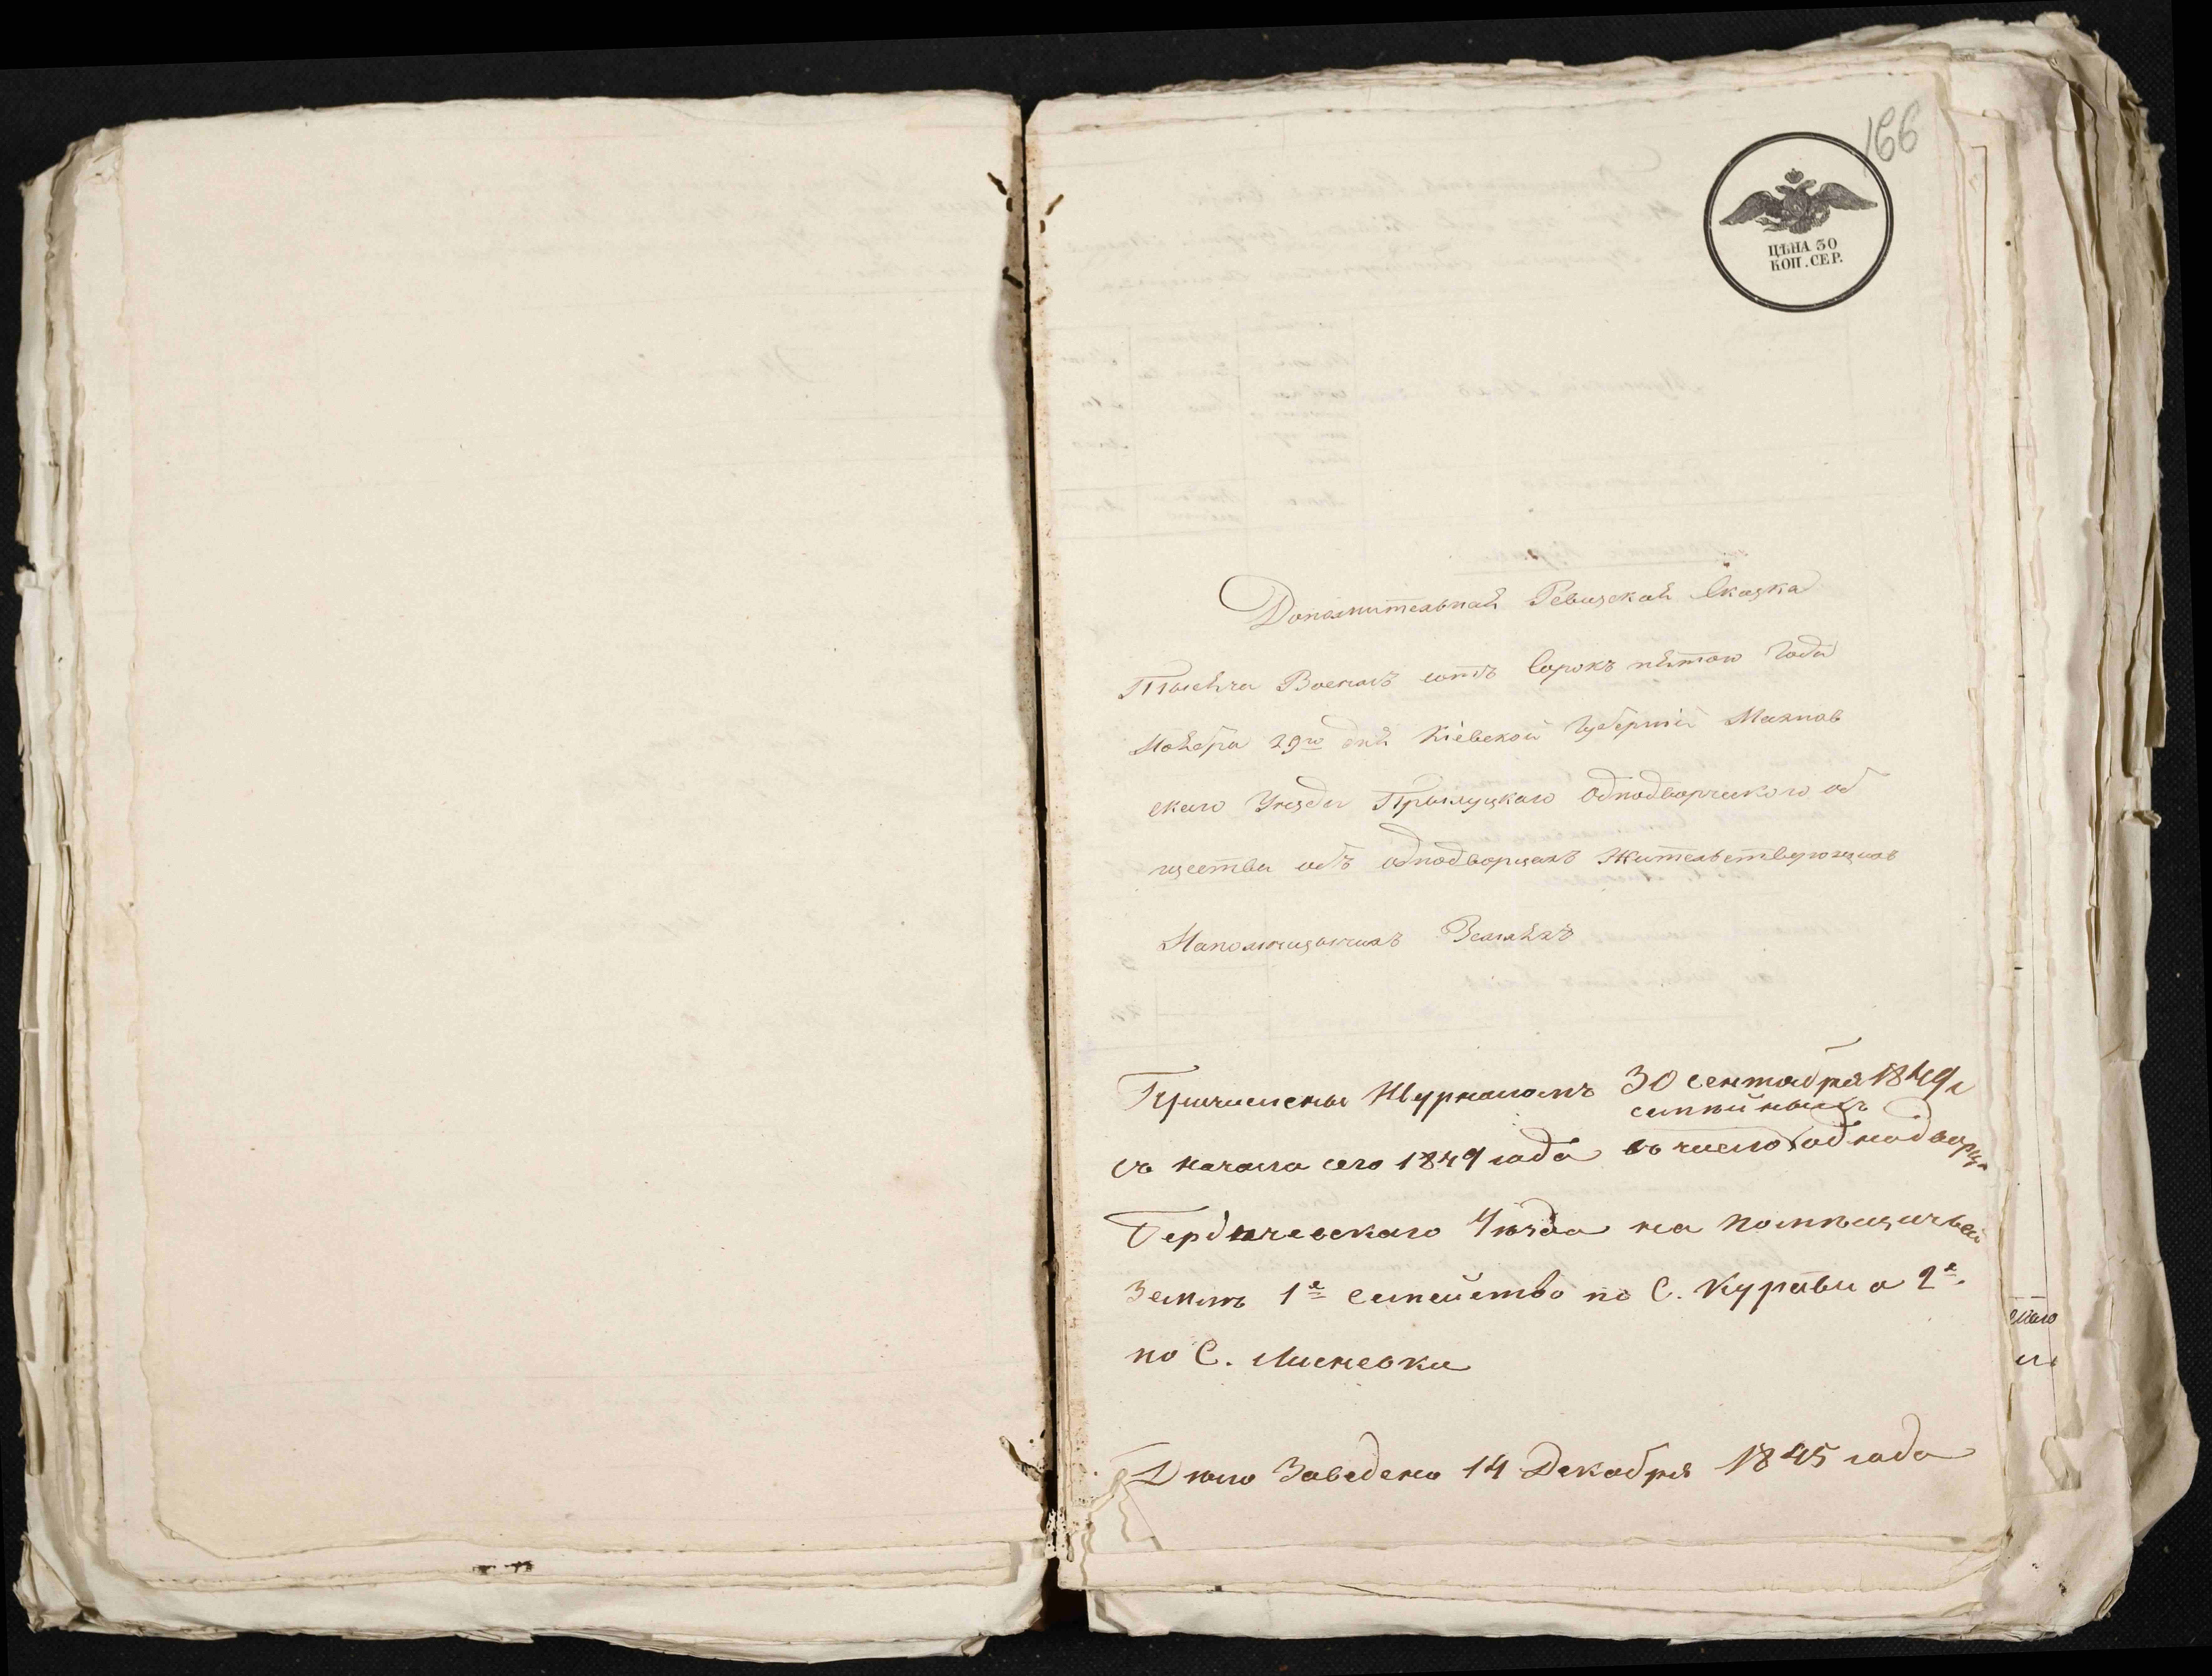 166
ЦѢНА 30
КОП. СЕР.
Дополнительная Ревизская Сказка
Тысяча Восемь сотъ Сорокъ пятаго Года
Ноября 29го дня Кіевской Губерніи Махнов
скаго Уезда Прылуцкаго Однодворческого об
щества объ однодворцахъ Жительствующихъ
НапомещичихъЗемляхъ
Причислены Журналомъ 30 сентября 1849 г
с начала сего 1849 года въ число однодворц.
Бердичевскаго Уѣзда на помѣщичьей
Землѣ 1е Семейство по С. Журавы а 2е.
по С. Лисневки
Дѣло Заведено 14 Декабря 1845 года